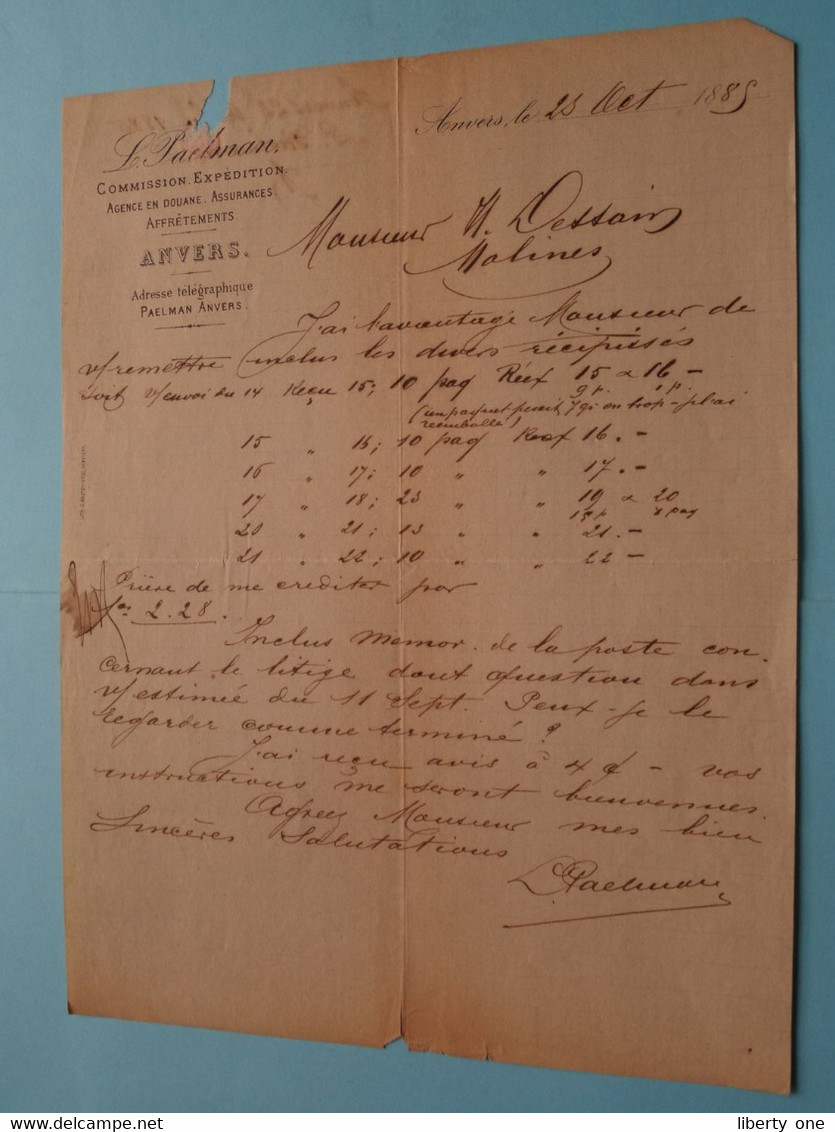 L. Paelman,
COMMISSION. EXPÉDITION.
AGENCE EN DOUANE. ASSURANCES
AFFRÊTEMENTS
ANVERS.
Adresse télégraphique
PAELMAN ANVERS.
Anvers, le 23 Oct 1885
Monsieur H. Dessain
Malines
J'ai l'avantage Monsieur de
v/remettre inclus les divers récipissés
soit v/envoi du 14 Reçu 15; 10 paq Réex 15 & 16 –
9 p. 1 p.
(un paquet pesait 7 gr en trop – j'l'ai
remballé!)
15 " 16; 10 paq Reex 16. –
16 " 17; 10 " " 17. –
17 " 18; 23 " " 19 & 20
20 " 21; 13 " " 21. –
21 " 22; 10 " " 22 –
Prière de me crediter par
frs 2.28.
Inclus memor. de la poste con-
cernant le litige dont question dans
v/estimée du 11 Sept. Peux-je le
regarder comme terminé?
J'ai reçu avis à 4 – vos
instructions me seront bienvenues.
Agreez Monsieur mes bien
Sincères Salutations
L Paelman
delcampe.net
liberty one